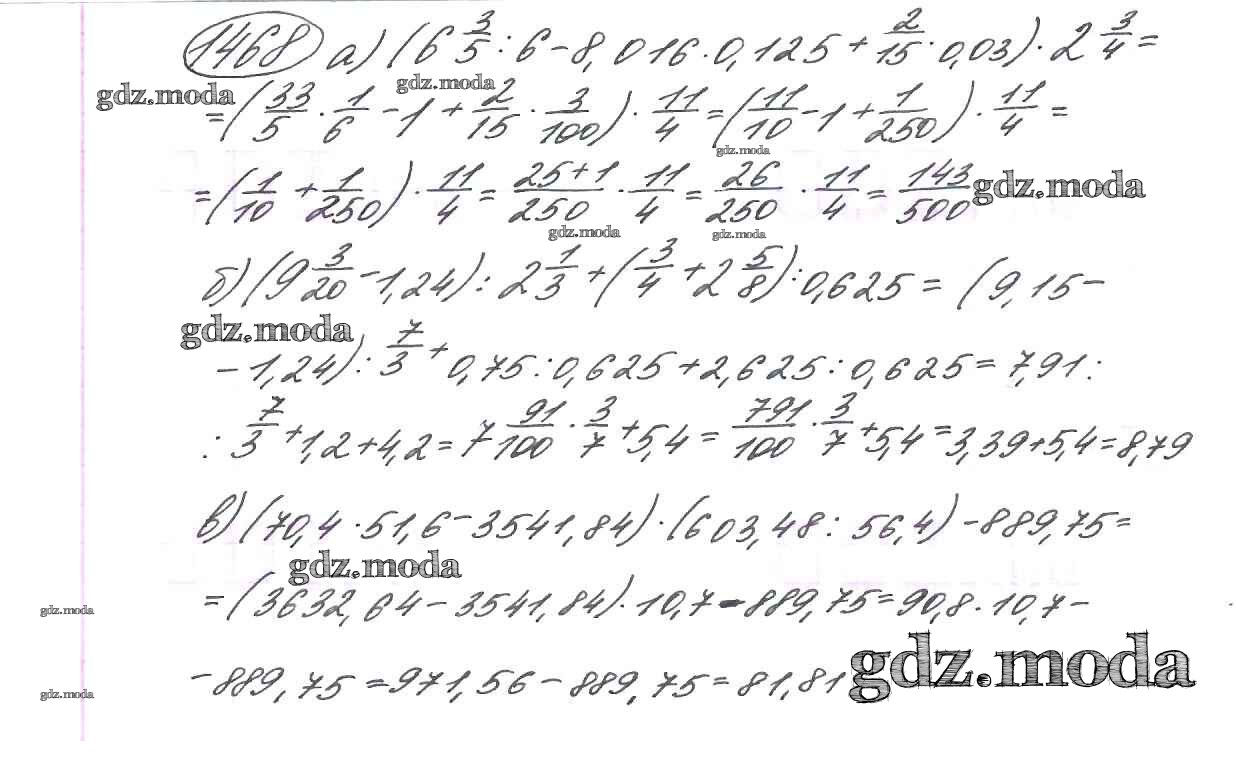 1468 а) (6 3/5 : 6 - 8,016 · 0,125 + 2/15 · 0,03) · 2 3/4 =
gdz.moda gdz.moda
= (33/5 · 1/6 - 1 + 2/15 · 3/100) · 11/4 = (11/10 - 1 + 1/250) · 11/4 =
gdz.moda
= (1/10 + 1/250) · 11/4 = (25+1)/250 · 11/4 = 26/250 · 11/4 = 143/500 gdz.moda
gdz.moda gdz.moda
б) (9 3/20 - 1,24) : 2 1/3 + (3/4 + 2 5/8) : 0,625 = (9,15 -
gdz.moda
- 1,24) : 7/3 + 0,75 : 0,625 + 2,625 : 0,625 = 7,91 :
: 7/3 + 1,2 + 4,2 = 7 91/100 · 3/7 + 5,4 = 791/100 · 3/7 + 5,4 = 3,39 + 5,4 = 8,79
в) (70,4 · 51,6 - 3541,84) · (603,48 : 56,4) - 889,75 =
gdz.moda
= (3632,64 - 3541,84) · 10,7 - 889,75 = 90,8 · 10,7 -
gdz.moda
- 889,75 = 971,56 - 889,75 = 81,81 gdz.moda
gdz.moda